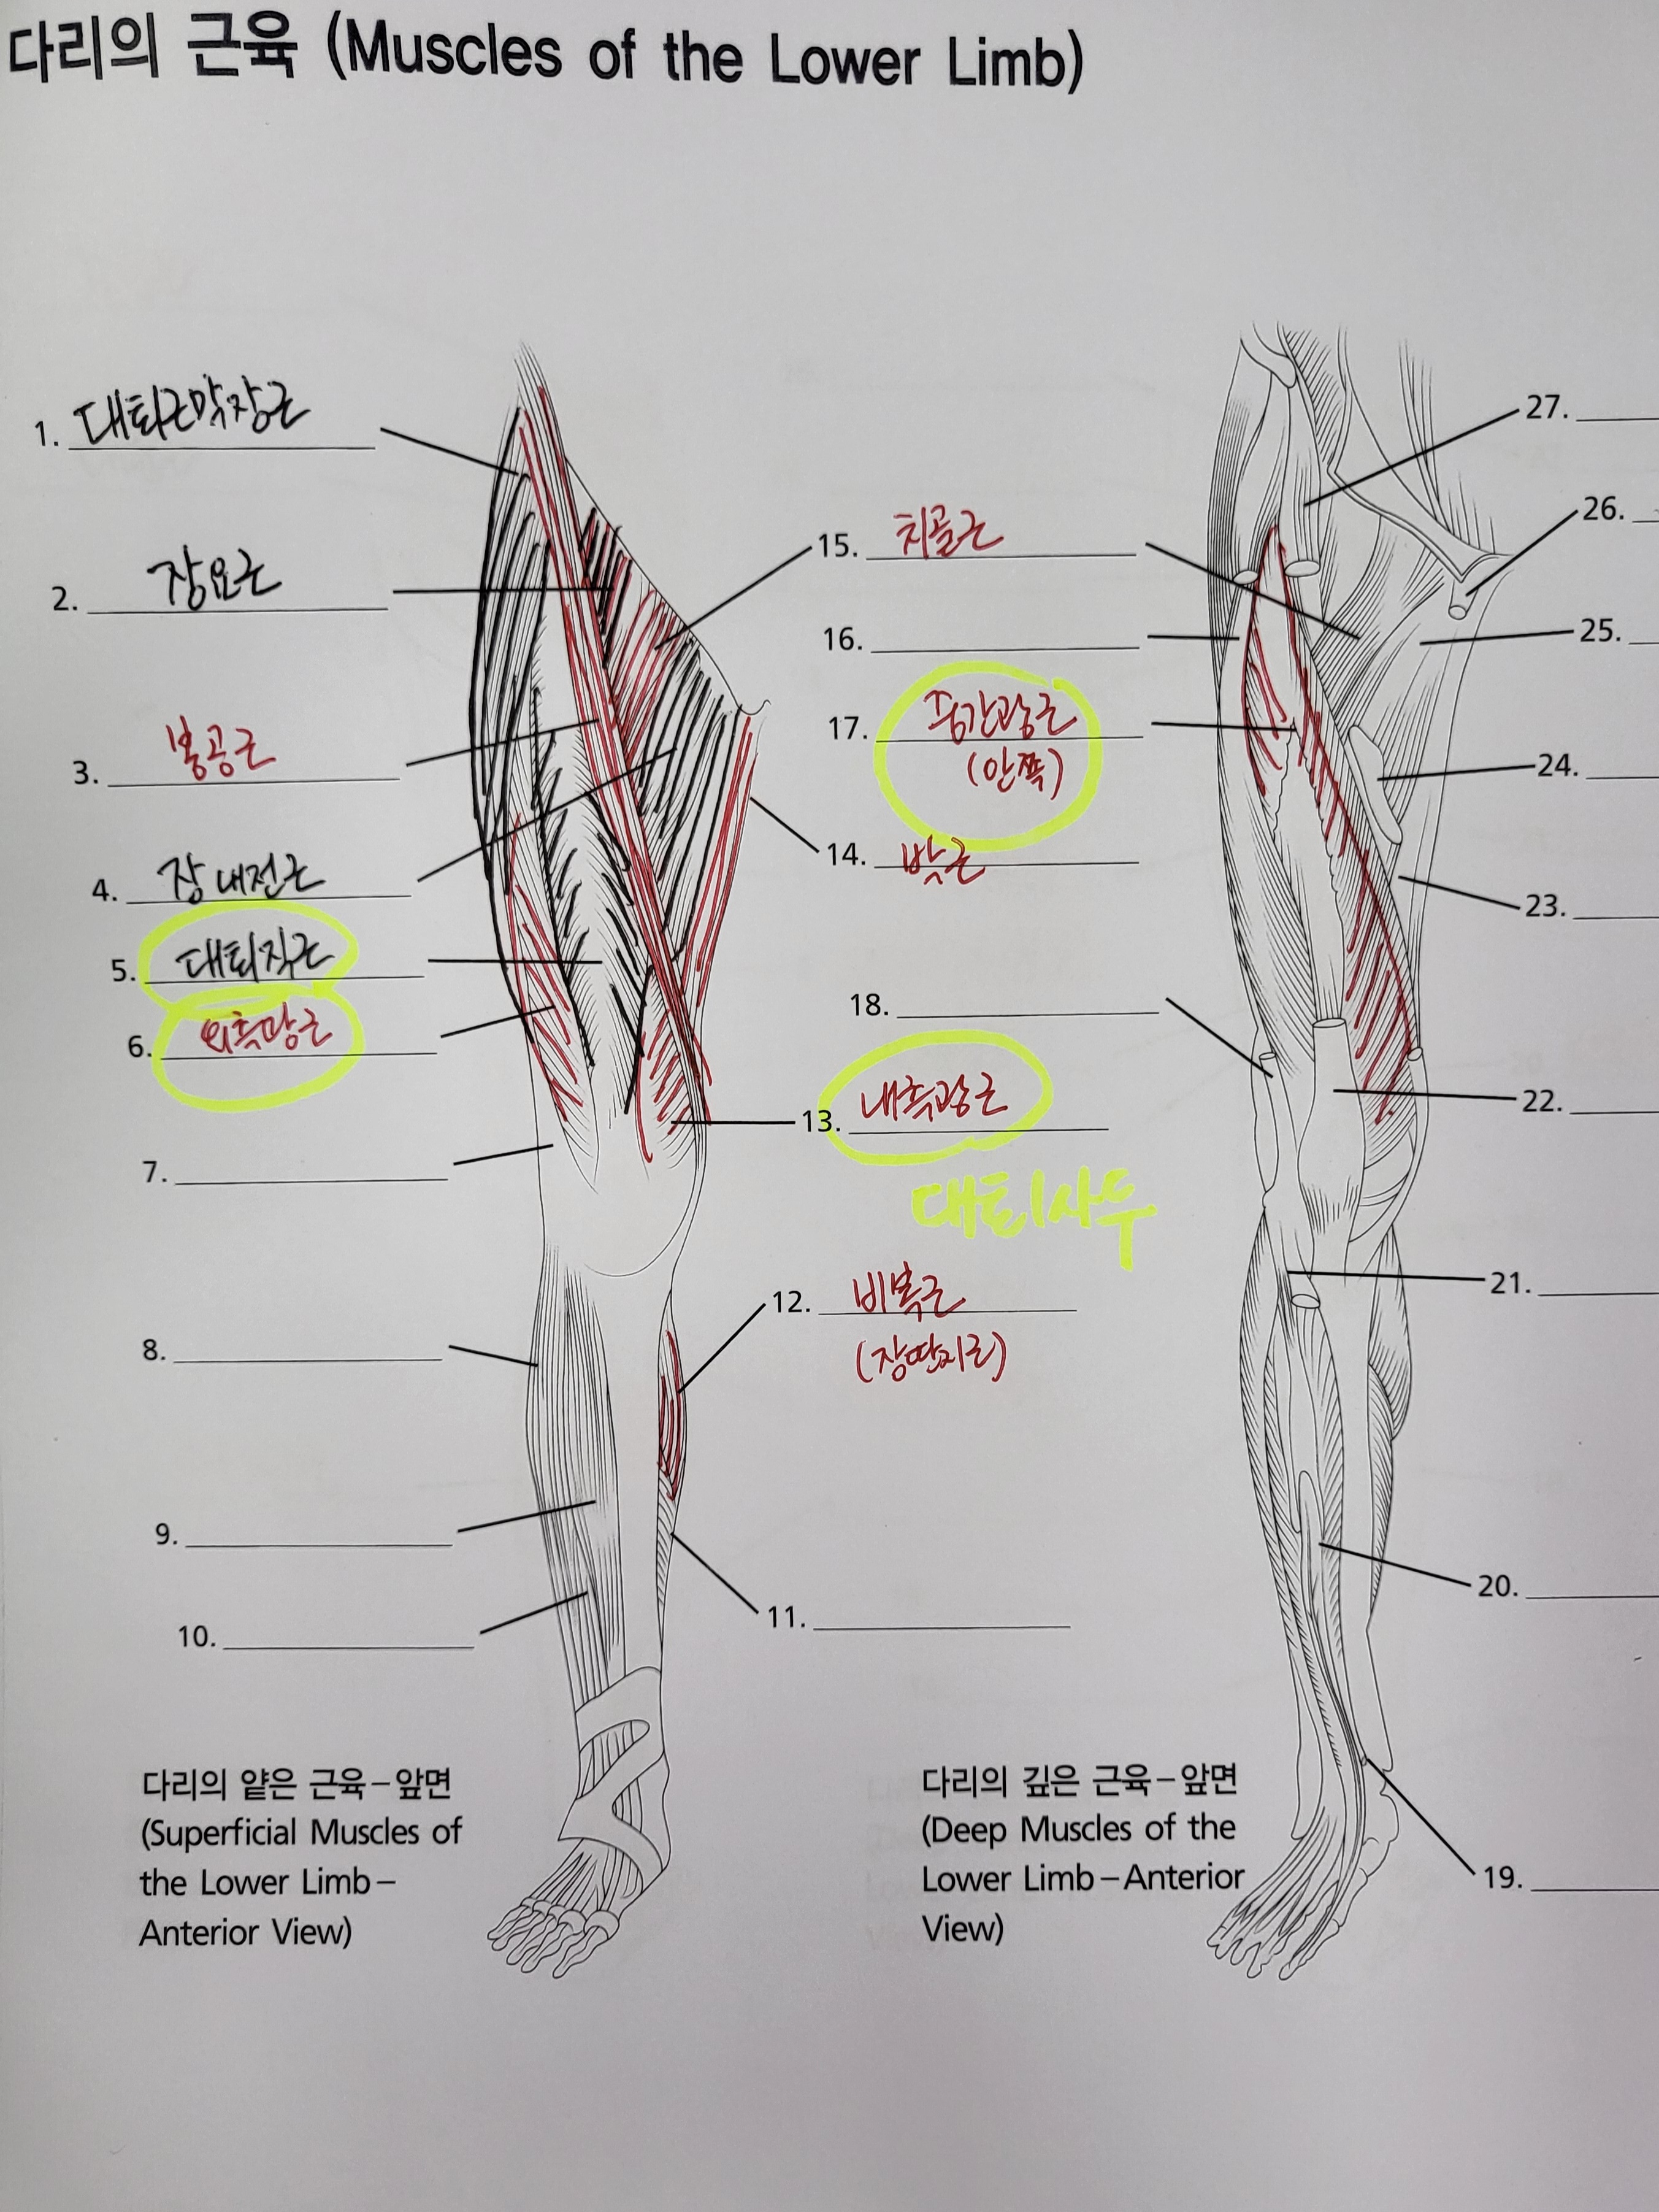 다리의 근육 (Muscles of the Lower Limb)
1. 대퇴근막장근
2. 장요근
3. 봉공근
4. 장내전근
5. 대퇴직근
6. 외측광근
7.
8.
9.
10.
다리의 얕은 근육-앞면
(Superficial Muscles of
the Lower Limb-
Anterior View)
15. 치골근
16.
17. 중간광근
(안쪽)
14. 박근
18.
13. 내측광근
대퇴사두
12. 비복근
(장딴지근)
11.
다리의 깊은 근육-앞면
(Deep Muscles of the
Lower Limb-Anterior
View)
27.
26.
25.
24.
23.
22.
21.
20.
19.